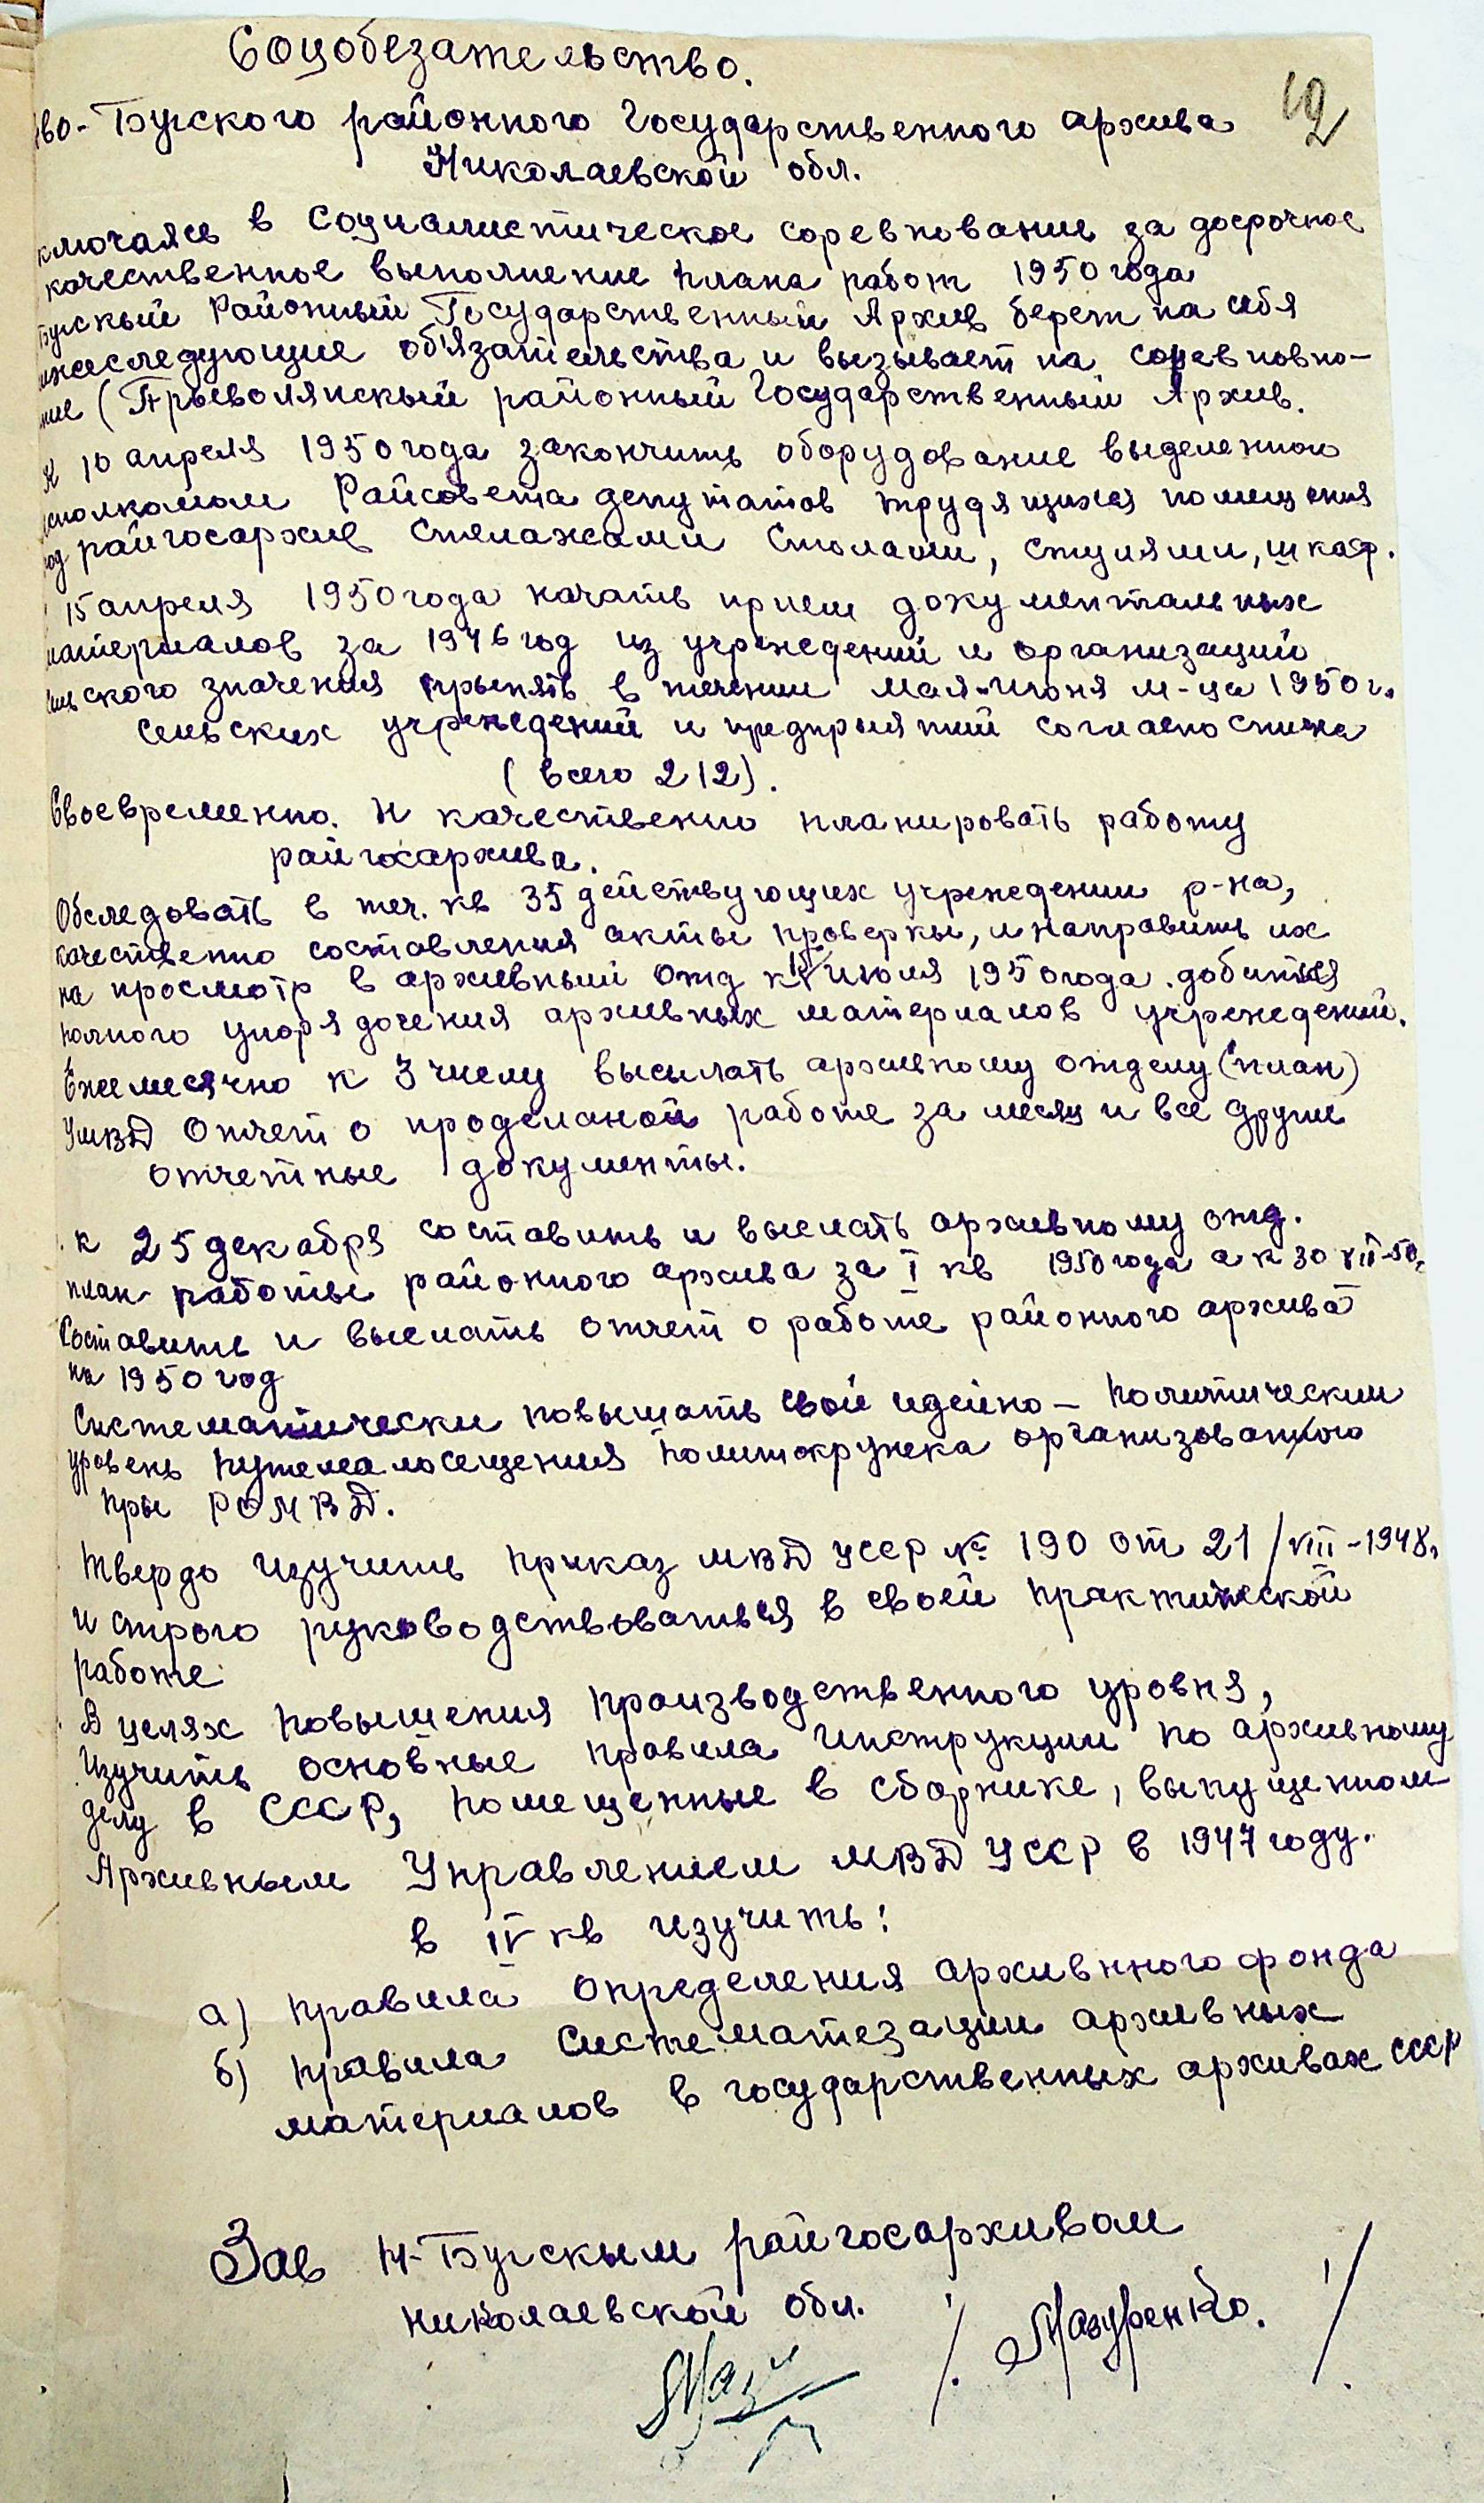 Соцобезательство.
12
во-Бугского районного Государственного архива
Николаевской обл.
ключаясь в Социалистическое соревнование за досрочное
качественное выполнение плана работ 1950 года
Бугскый Районный Государственный Архив берет на себя
нжеследующие об'язательства и вызывает на соревнова-
ние (Прывольянскый районный Государственный Архив.
К 10 апреля 1950 года закончить оборудование выделенного
сполкомом Райсовета депутатов трудящихся помещения
од райгосархив Стелажами Столами, стулями, шкаф.
15 апреля 1950 года начать прием документальных
материалов за 1946 год из учреждений и организаций
ельского значения прынять в течении мая-июня м-ца 1950 г.
сельских учреждений и предпрыятий согласно списка
(всего 212).
Своевременно. И качественно планировать работу
райгосархива.
Обследовать в теч. кв 35 действующих учреждении р-на,
качественно составления акты проверкы, и направить их
на просмотр в архивный отд к 15 июля 1950 года. добиться
полного упорядочения архивных материалов учреждений.
Ежемесячно к 3 числу высылать архивному отделу (план)
УМВД Отчет о проделаной работе за месяц и все другие
отчетные документы.
к 25 декабря составить и выслать архивному отд.
план работы районного архива за I кв 1950 года а к 30 XII-50г.
Составить и выслать отчет о работе районного архива
на 1950 год
Систематически повышать свой идейно - политическии
уровень путемапосещения политокружка организованого
пры РОМВД.
Твердо изучить приказ МВД УССР № 190 от 21/VIII-1948г.
и строго руководствоваться в своей практической
работе
В целях повышения производственного уровня,
Изучить основные правила инструкции по архивному
делу в СССР, помещенные в сборнике, выпущенном
Архивным Управлением МВД УССР в 1947 году.
в IV кв изучить:
а) правила определения архивнного фонда
б) правила систематезации архивных
материалов в государственных архивах СССР
Зав Н-Бугскым райгосархивом
николаевской обл. /. Мазуренко. /.